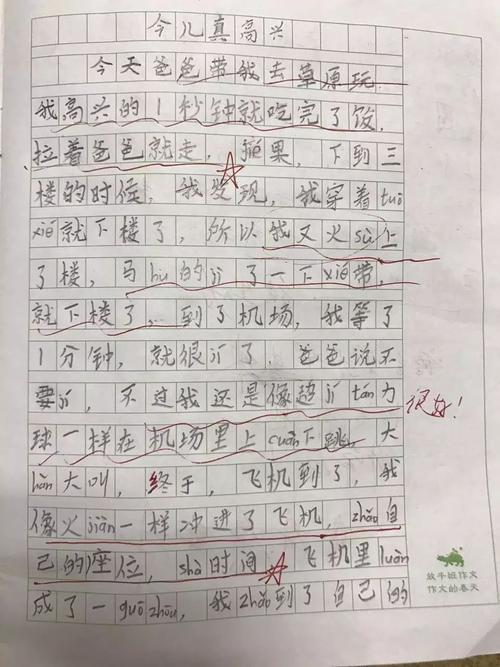 今儿真高兴
今天爸爸带我去草原玩
我高兴的1秒钟就吃完了饭,
拉着爸爸就走,捱果,下到三
楼的时位,我发现,我穿着tuō
xié就下楼了,所以我又火sù上
了楼,马hu的jì了一下xié带,
就下楼了…到了机场,我等了
1分钟,就很jí了。爸爸说不
要jí,不过我还是像超jí tán力
球一样在机场里上cuàn下跳,大
hǎn大叫,终于,飞机到了,我
像火jiàn一样冲进了飞机,zhǎo自
己的座位,shà时间,飞机里luàn
成了一guō zhōu,我zhǎo到了自己的
很好!
放牛班作文
作文的春天